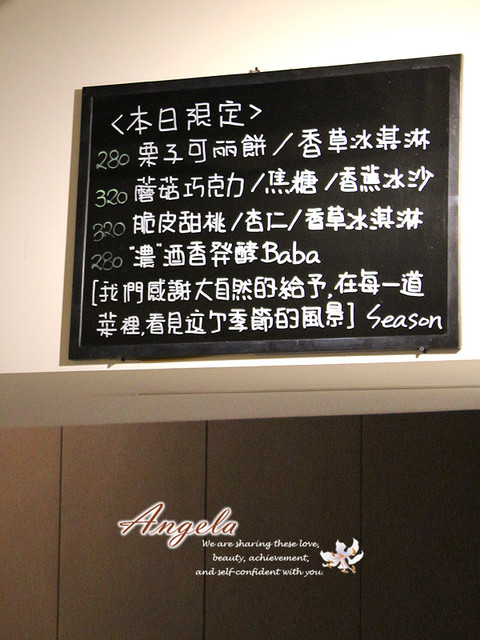 <本日限定>
280 栗子可丽餅/香草冰淇淋
320 蘑菇巧克力/焦糖/香蕉冰沙
320 脆皮甜桃/杏仁/香草冰淇淋
280 "濃"酒香発酵Baba
[我們感謝大自然的給予,在每一道
菜裡,看見这个季節的風景] Season
Angela
We are sharing these love,
beauty, achievement,
and self-confident with you.